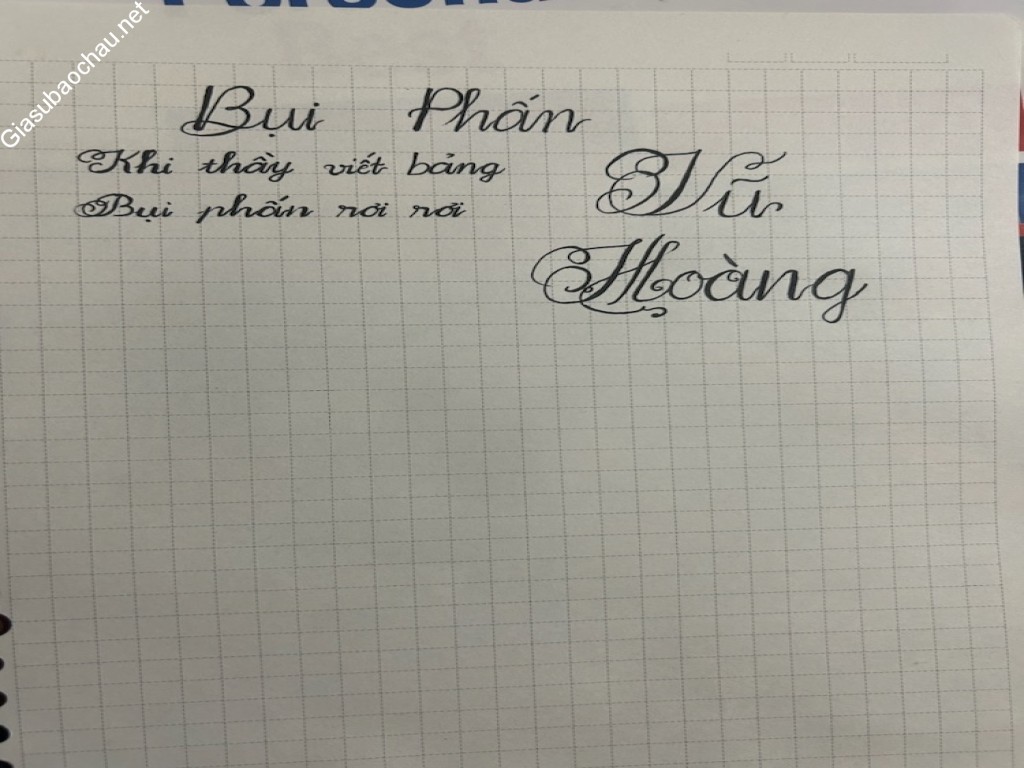 Giasubaochau.net
Bụi Phấn
Khi thầy viết bảng
Bụi phấn rơi rơi
Vũ
Hoàng